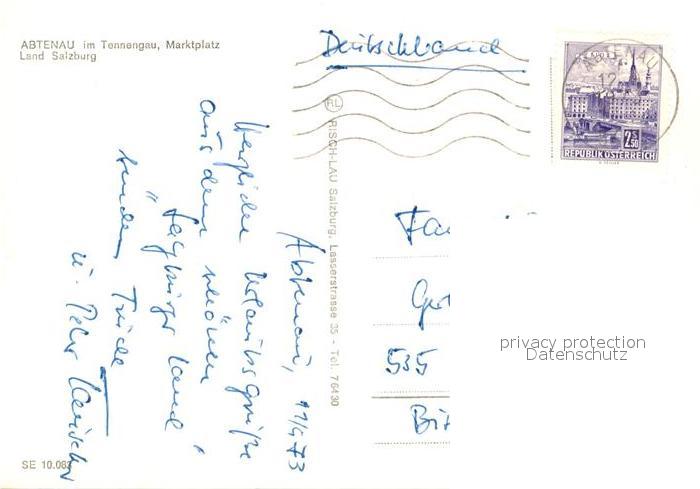 ABTENAU im Tennengau, Marktplatz
Land Salzburg
Deutschland
ABTENAU
12
2.50
REPUBLIK ÖSTERREICH
RL RISCH-LAU Salzburg, Lasserstrasse 35 - Tel. 76430
Abtenau, 11/4 73
Herzliche Urlaubsgrüße
aus dem schönen
Salzburger Land
senden
u. Peter
Fa
535
Bit
privacy protection
Datenschutz
SE 10.083